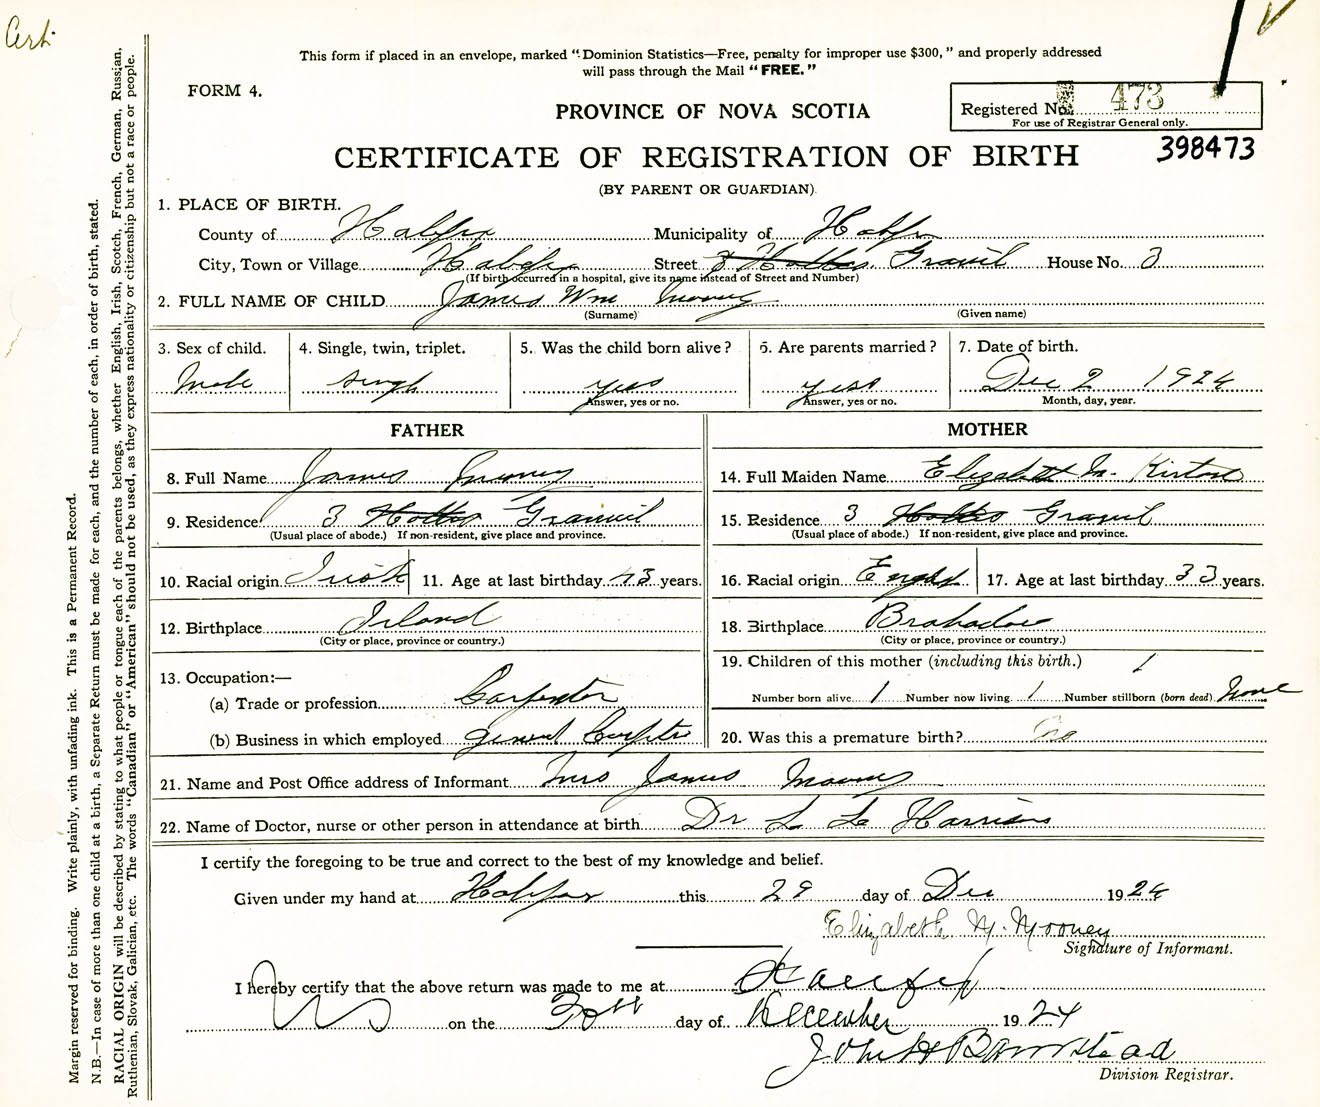 Cert.
This form if placed in an envelope, marked “Dominion Statistics—Free, penalty for improper use $300,” and properly addressed
will pass through the Mail “FREE.”
FORM 4.
PROVINCE OF NOVA SCOTIA
Registered No. 473
For use of Registrar General only.
CERTIFICATE OF REGISTRATION OF BIRTH
398473
(BY PARENT OR GUARDIAN)
1. PLACE OF BIRTH.
County of Halifax Municipality of Halifax
City, Town or Village Halifax Street 3 Hollis Granvil House No. 3
(If birth occurred in a hospital, give its name instead of Street and Number)
2. FULL NAME OF CHILD James Wm Mooney
(Surname) (Given name)
3. Sex of child. 4. Single, twin, triplet. 5. Was the child born alive? 6. Are parents married? 7. Date of birth.
Male Singl yess yess Dec 2 1924
Answer, yes or no. Answer, yes or no. Month, day, year.
FATHER MOTHER
8. Full Name James Mooney 14. Full Maiden Name Elizabeth M. Kirton
9. Residence 3 Hollis Granvil 15. Residence 3 Hollis Granvil
(Usual place of abode.) If non-resident, give place and province. (Usual place of abode.) If non-resident, give place and province.
10. Racial origin Irish 11. Age at last birthday 43 years. 16. Racial origin English 17. Age at last birthday 33 years.
12. Birthplace Irland 18. Birthplace
(City or place, province or country.) (City or place, province or country.)
13. Occupation:— 19. Children of this mother (including this birth.) 1
(a) Trade or profession Carpenter Number born alive 1 Number now living 1 Number stillborn (born dead) None
(b) Business in which employed General Carpenter 20. Was this a premature birth? No
21. Name and Post Office address of Informant Mrs James Mooney
22. Name of Doctor, nurse or other person in attendance at birth Dr L L Harrison
I certify the foregoing to be true and correct to the best of my knowledge and belief.
Given under my hand at Halifax this 29 day of Dec 1924
Elizabeth M. Mooney
Signature of Informant.
I hereby certify that the above return was made to me at Halifax
NS on the 30th day of December 1924
John H Barnstead
Division Registrar.
Margin reserved for binding. Write plainly, with unfading ink. This is a Permanent Record.
N.B.—In case of more than one child at a birth, a Separate Return must be made for each, and the number of each, in order of birth, stated.
RACIAL ORIGIN will be described by stating to what people or tongue each of the parents belongs, whether English, Irish, Scotch, French, German, Russian,
Ruthenian, Slovak, Galician, etc. The words “Canadian” or “American” should not be used, as they express nationality or citizenship but not a race or people.